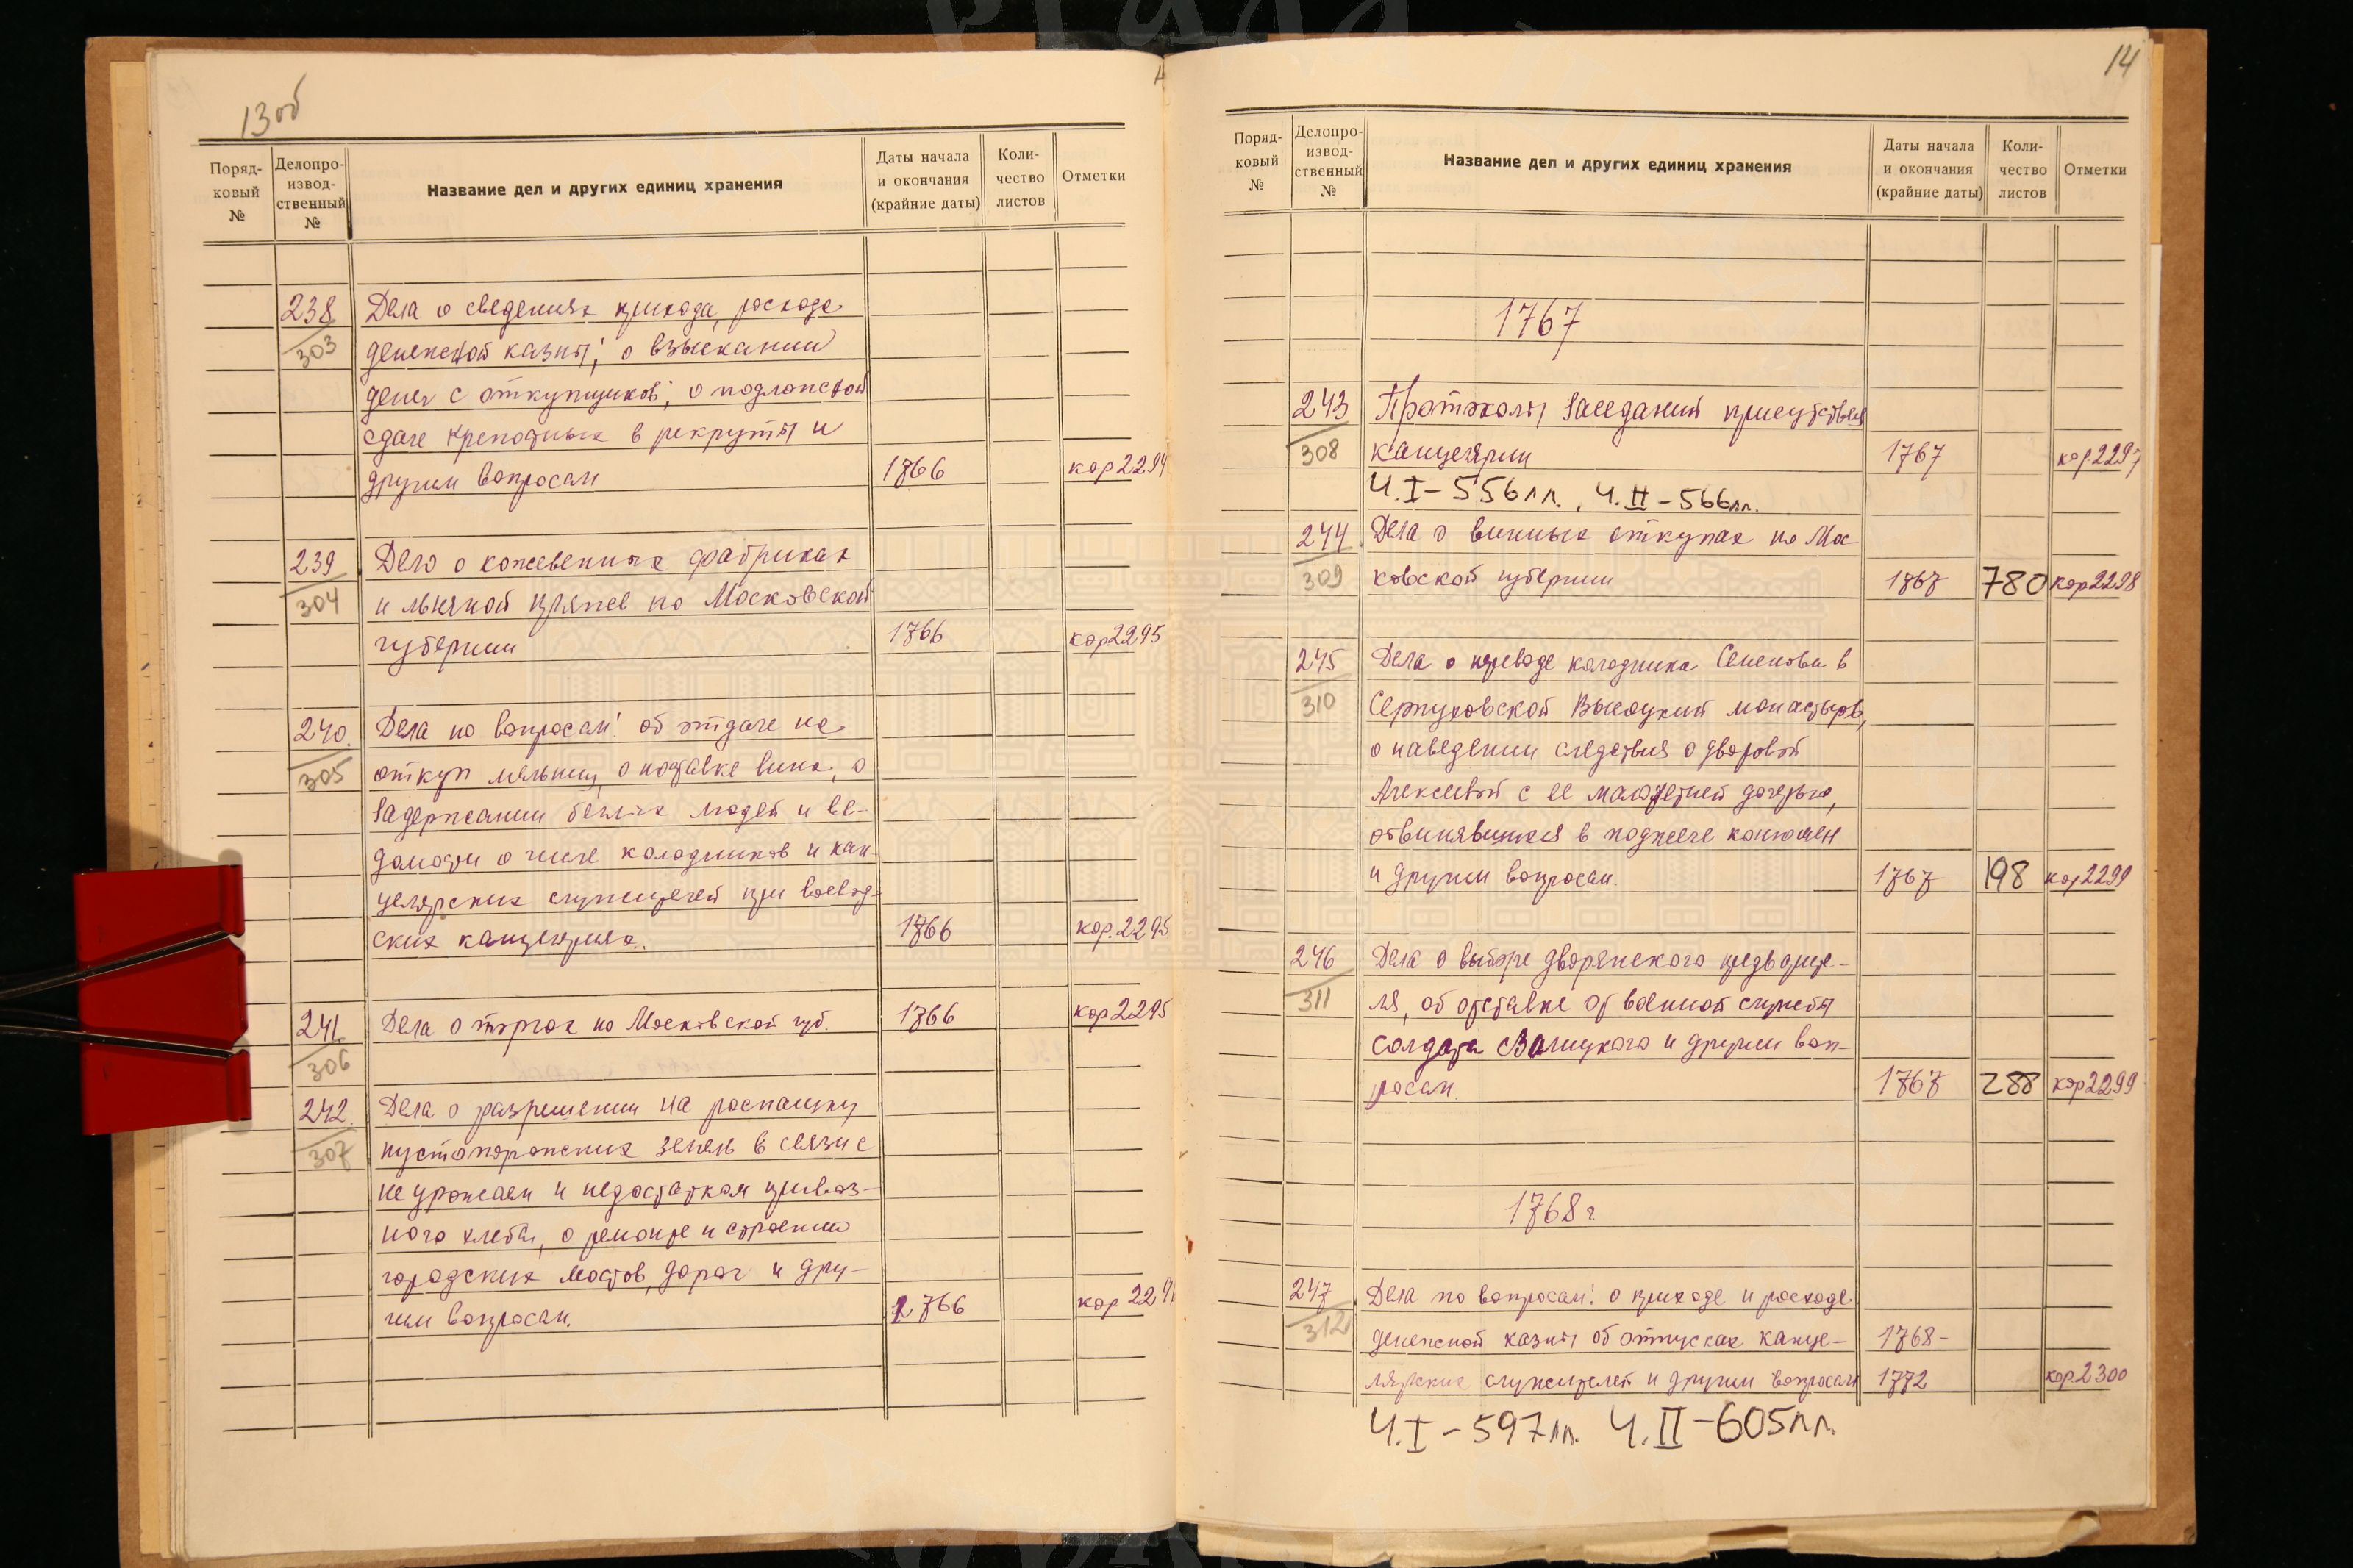 13об
Поряд-
ковый
№
Делопро-
извод-
ственный
№
Название дел и других единиц хранения
Даты начала
и окончания
(крайние даты)
Коли-
чество
листов
Отметки
238
303
Дела о сведениях прихода, расхода
денежной казны; о взыскании
денег с откупщиков; о подложной
сдаче крепостных в рекруты и
другим вопросам
1766
кор 2294
239
304
Дело о кожевенных фабриках
и льняной пряже по Московской
губернии
1766
кор 2295
240.
305
Дела по вопросам: об отдаче на
откуп мельниц, о поставке вина, о
задержании беглых людей и ве-
домости о числе колодников и кан-
целярских служителей при воевод-
ских канцеляриях.
1766
кор. 2295
241.
306
Дела о торгах по Московской губ.
1766
кор 2295
242.
307
Дела о разрешении на распашку
пустопорожних земель в связи с
неурожаем и недостатком привоз-
ного хлеба, о ремонте и строении
городских мостов, дорог и дру-
гим вопросам.
1766
кор 229
14
Поряд-
ковый
№
Делопро-
извод-
ственный
№
Название дел и других единиц хранения
Даты начала
и окончания
(крайние даты)
Коли-
чество
листов
Отметки
1767
243
308
Протоколы заседаний присутствия
канцелярии
1767
кор. 2297
Ч. I – 556 лл., Ч. II – 566 лл.
244
309
Дела о винных откупах по Мос
ковской губернии
1767
780
кор 2298
245
310
Дела о переводе колодника Семенова в
Серпуховской Высоцкий монастырь,
о наведении следствия о дворовой
Алексеевой с ее малолетней дочерью,
обвинявшихся в поджоге конюшен
и другим вопросам.
1767
198
кор 2299
246
311
Дела о выборе дворянского предводите-
ля, об отставке от военной службы
солдата Валицкого и другим воп-
росам.
1767
288
кор 2299
1768 г.
247
312
Дела по вопросам: о приходе и расходе
денежной казны об отпусках канце-
лярских служителей и другим вопросам
1768-
1772
кор. 2300
Ч. I – 597 лл. Ч. II – 605 лл.